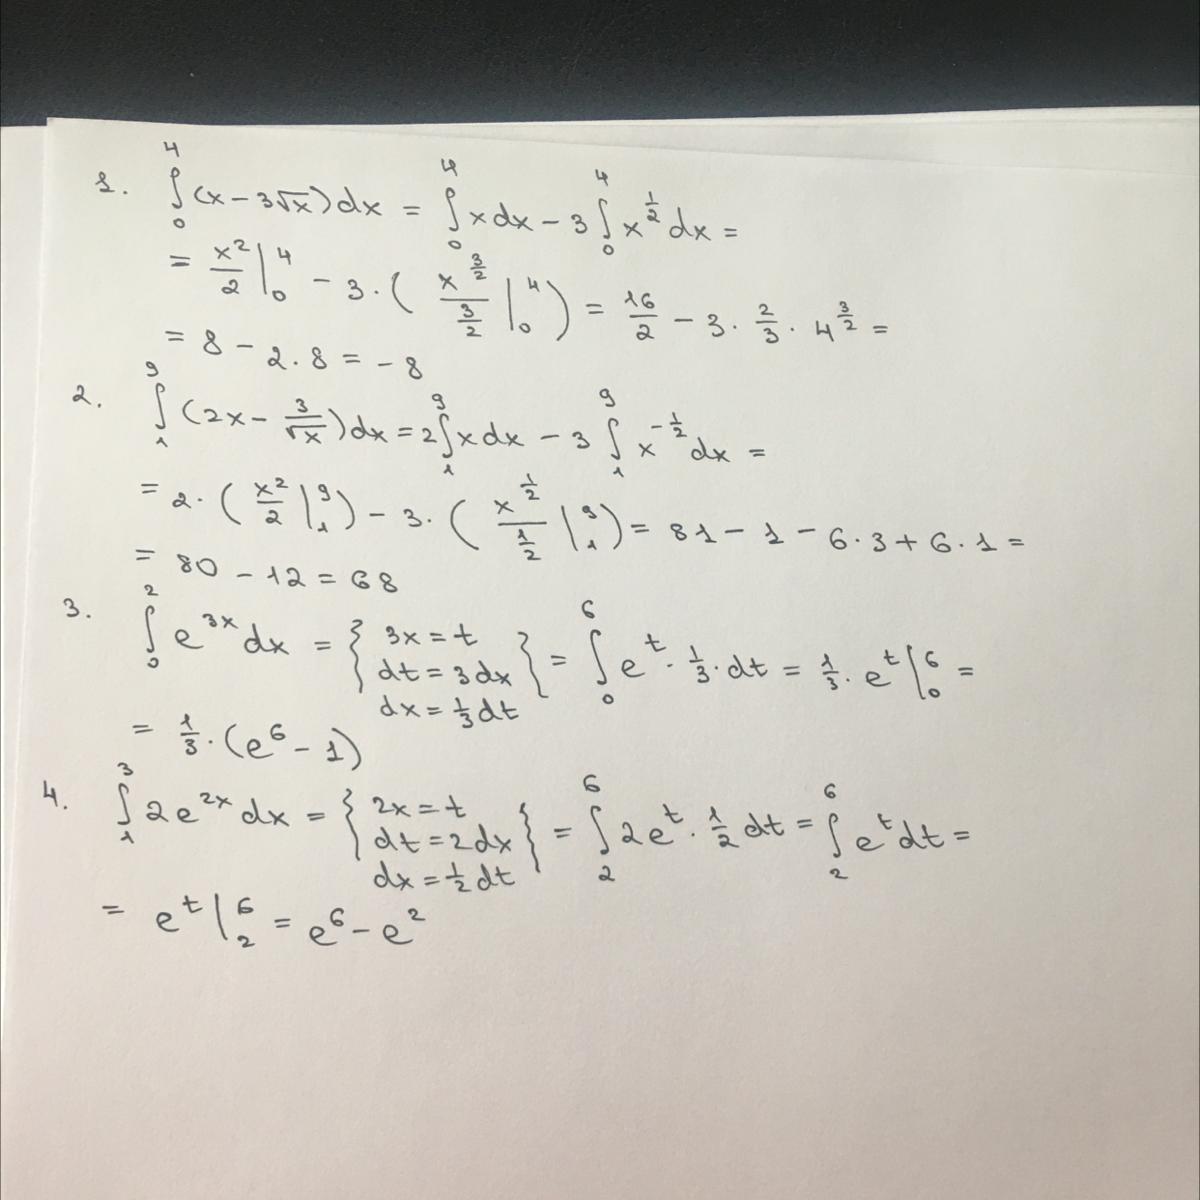 1. ∫₀⁴ (x − 3√x) dx = ∫₀⁴ x dx − 3 ∫₀⁴ x^(1/2) dx =
= x²/2 |₀⁴ − 3 · ( x^(3/2) / (3/2) |₀⁴ ) = 16/2 − 3 · 2/3 · 4^(3/2) =
= 8 − 2 · 8 = − 8
2. ∫₁⁹ (2x − 3/√x) dx = 2 ∫₁⁹ x dx − 3 ∫₁⁹ x^(−1/2) dx =
= 2 · ( x²/2 |₁⁹ ) − 3 · ( x^(1/2) / (1/2) |₁⁹ ) = 81 − 1 − 6 · 3 + 6 · 1 =
= 80 − 12 = 68
3. ∫₀² e^(3x) dx = { 3x = t
dt = 3dx
dx = 1/3 dt } = ∫₀⁶ e^t · 1/3 · dt = 1/3 · e^t |₀⁶ =
= 1/3 · (e⁶ − 1)
4. ∫₁³ 2e^(2x) dx = { 2x = t
dt = 2dx
dx = 1/2 dt } = ∫₂⁶ 2e^t · 1/2 dt = ∫₂⁶ e^t dt =
= e^t |₂⁶ = e⁶ − e²